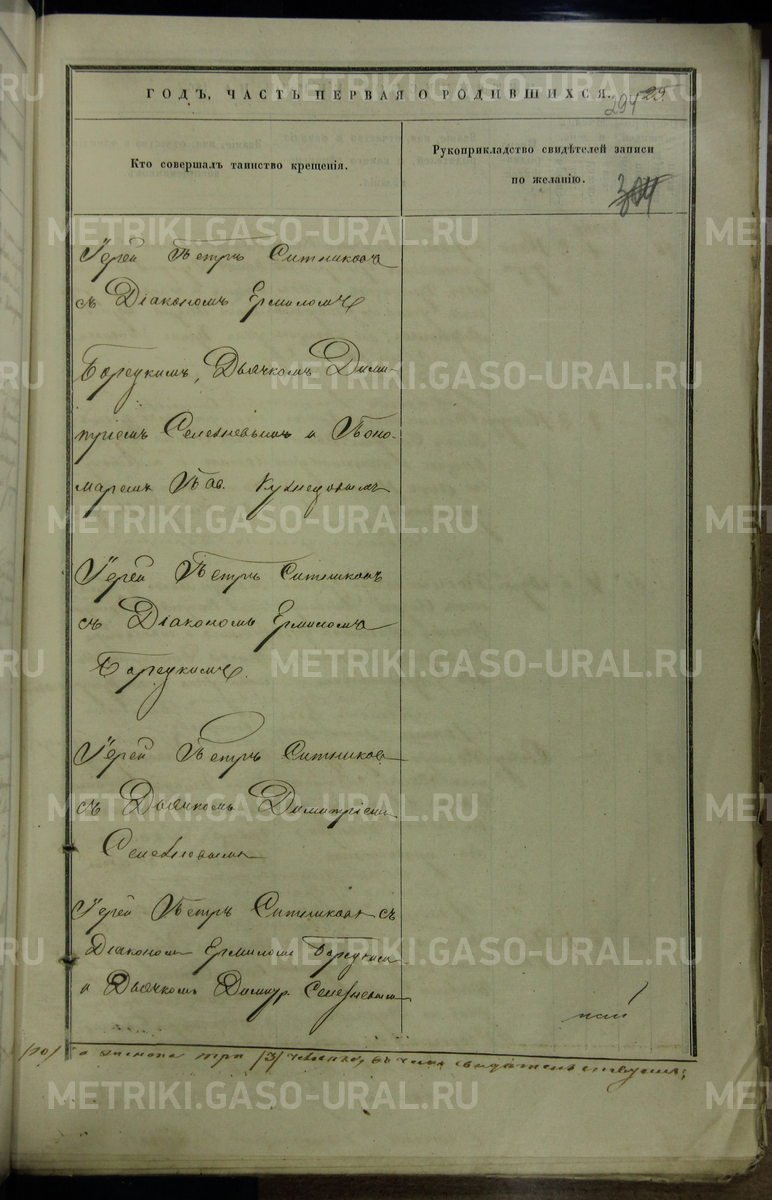 ГОДЪ, ЧАСТЬ ПЕРВАЯ О РОДИВШИХСЯ.
294 29
Кто совершалъ таинство крещенія.
Рукоприкладство свидѣтелей записи
по желанію.
304
Іерей Петръ Ситниковъ
съ Діакономъ Ермиломъ
Борецкимъ, Дьячкомъ Дими-
тріемъ Селезневымъ и Поно-
маремъ Пав. Кузнецовымъ
Іерей Петръ Ситниковъ
съ Діакономъ Ермиломъ
Борецкимъ.
Іерей Петръ Ситниковъ
съ Дьячкомъ Димитріемъ
Селезневымъ
Іерей Петръ Ситниковъ съ
Діакономъ Ермиломъ Борецкимъ
и Дьячкомъ Димитр. Селезневымъ
три /3/ человека, въ чемъ свидѣтельствуемъ:
METRIKI.GASO-URAL.RU